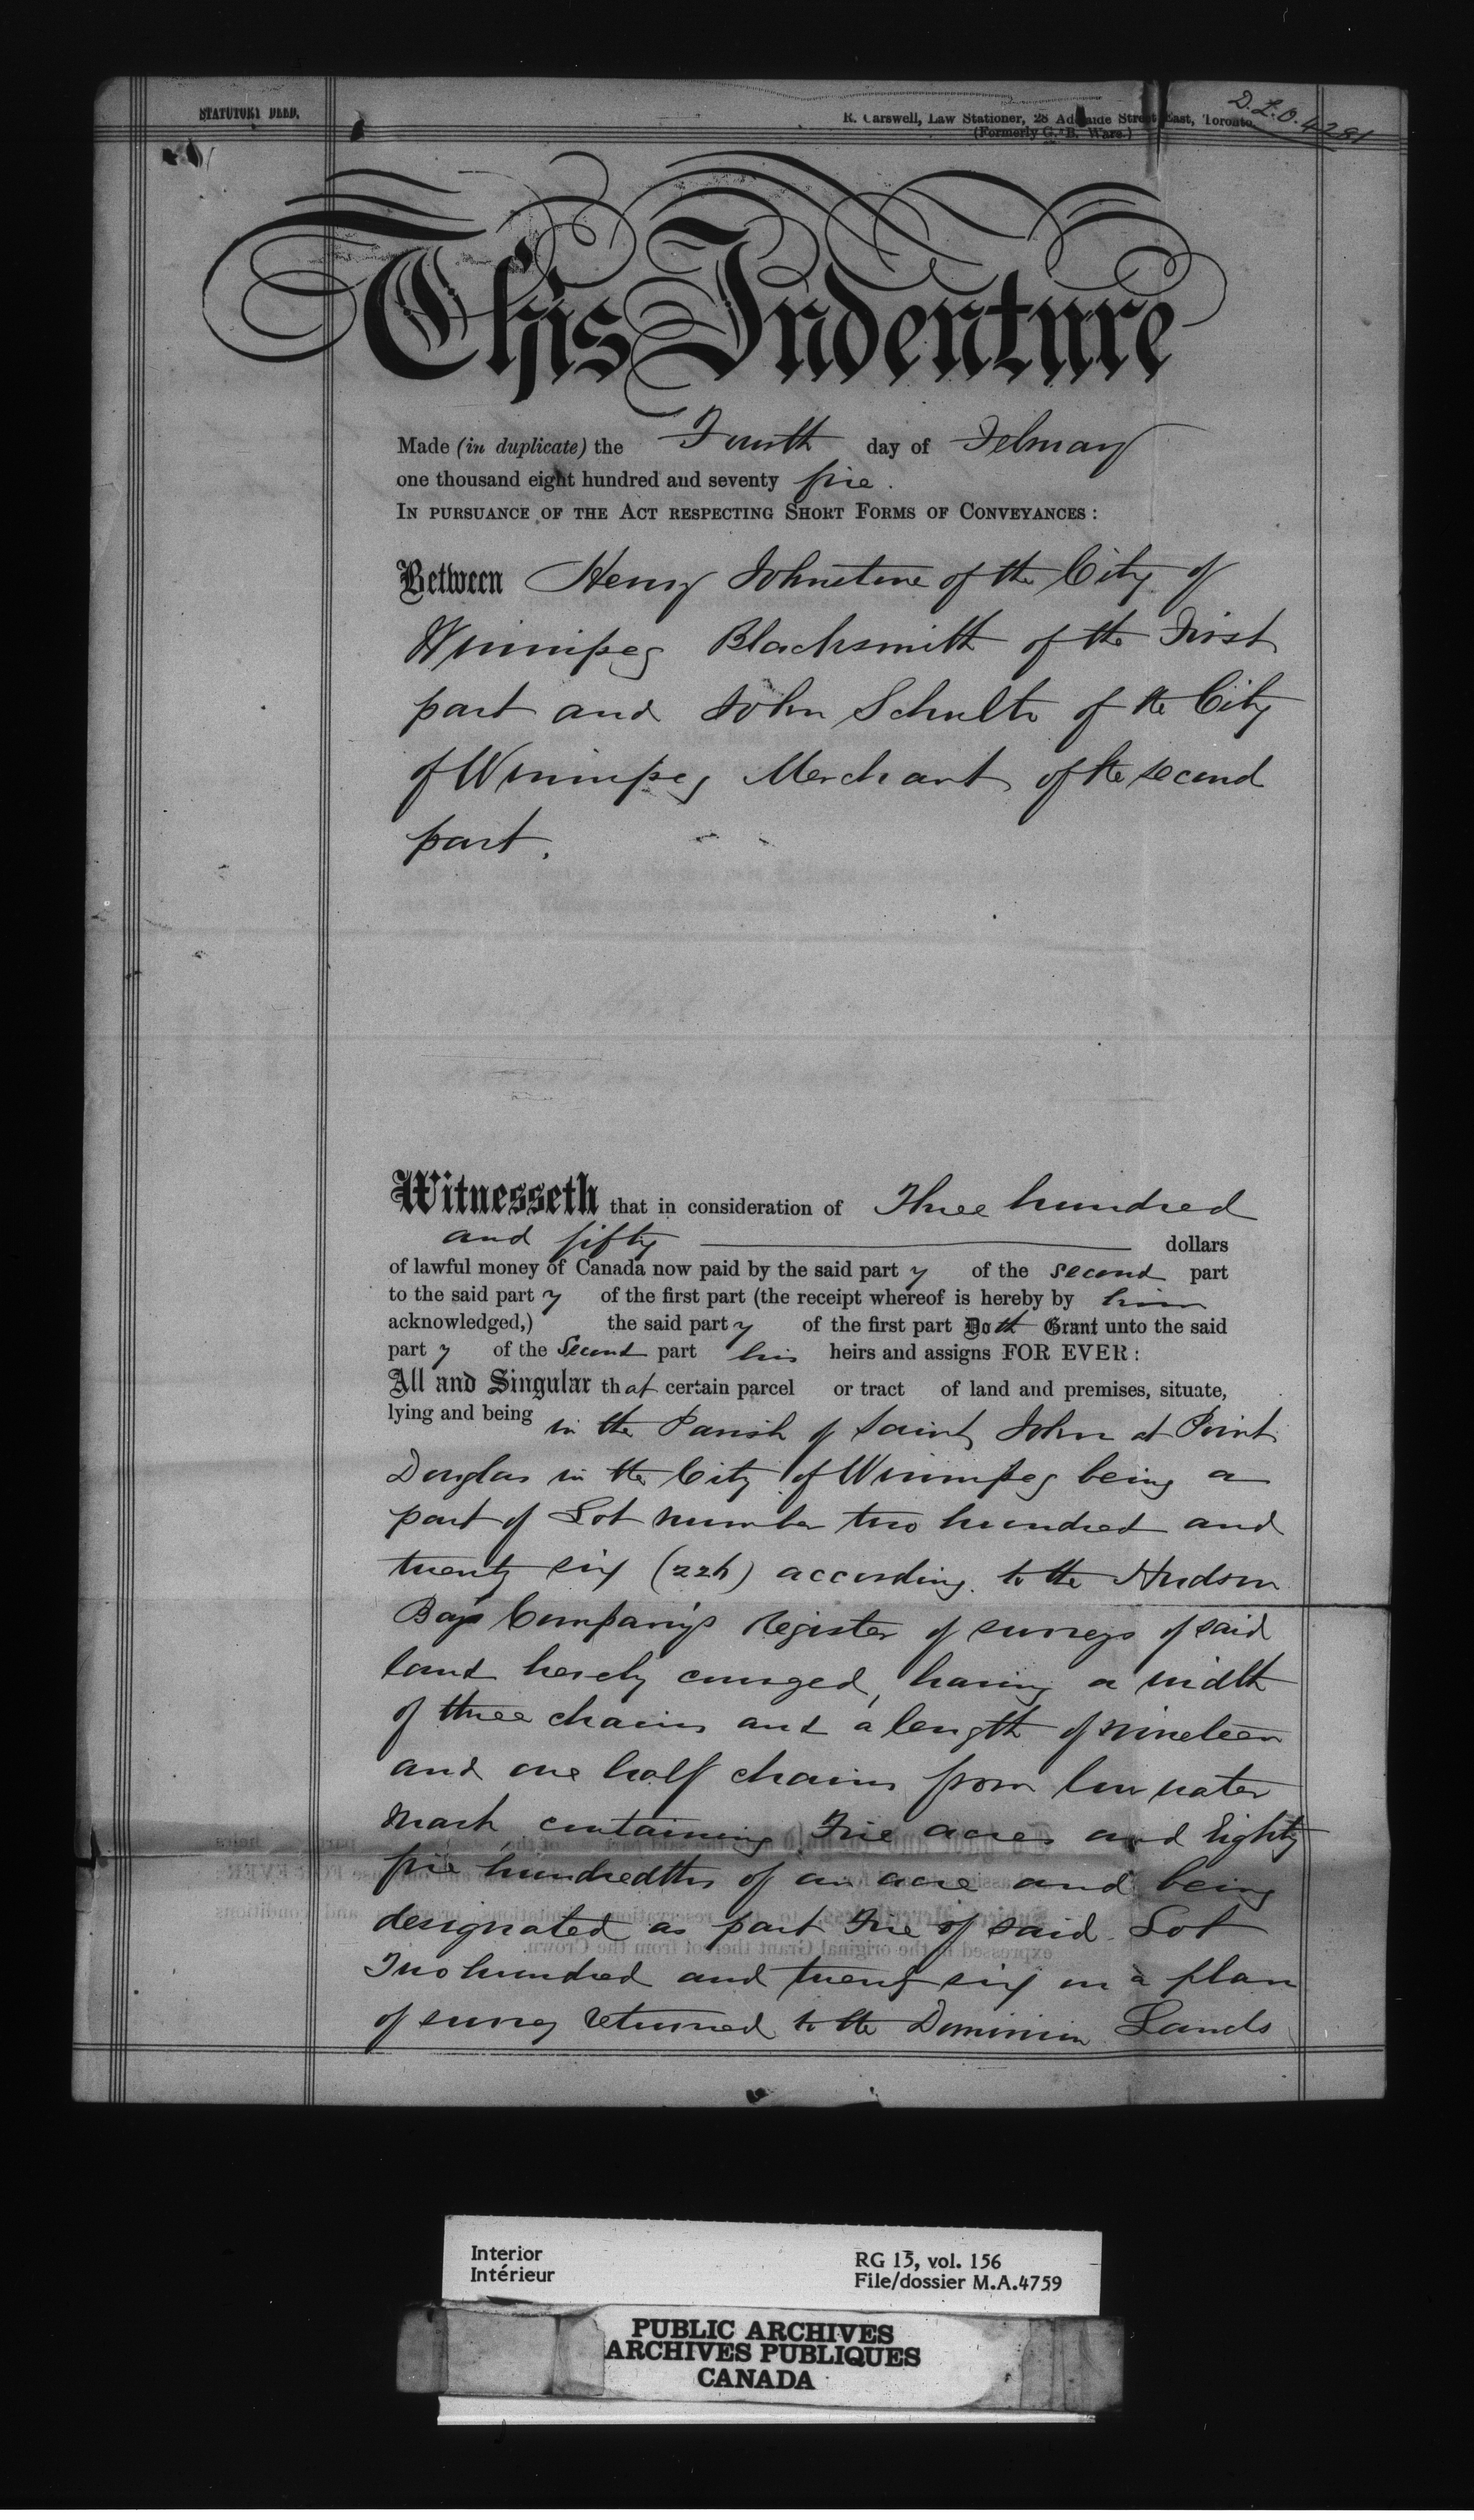 STATUTORY DEED.
R. Carswell, Law Stationer, 28 Adelaide Street East, Toronto.
(Formerly G. B. Ware.)
D.L.O. 4281
This Indenture
Made (in duplicate) the Fourth day of February
one thousand eight hundred and seventy five.
IN PURSUANCE OF THE ACT RESPECTING SHORT FORMS OF CONVEYANCES:
Between Henry Johnstone of the City of
Winnipeg Blacksmith of the First
part and John Schultz of the City
of Winnipeg Merchant of the second
part.
Witnesseth that in consideration of Three hundred
and fifty dollars
of lawful money of Canada now paid by the said party of the second part
to the said party of the first part (the receipt whereof is hereby by him
acknowledged,) the said party of the first part Doth Grant unto the said
party of the Second part his heirs and assigns FOR EVER:
All and Singular that certain parcel or tract of land and premises, situate,
lying and being in the Parish of Saint John at Point
Douglas in the City of Winnipeg being a
part of Lot number two hundred and
twenty six (226) according to the Hudson
Bays Company's Register of surveys of said
land hereby conveyed, having a width
of three chains and a length of nineteen
and one half chains from low water
mark containing Five acres and Eighty
five hundredths of an acre and being
designated as part Five of said Lot
Two hundred and twenty six on a plan
of survey returned to the Dominion Lands
Interior
Intérieur
RG 15, vol. 156
File/dossier M.A.4759
PUBLIC ARCHIVES
ARCHIVES PUBLIQUES
CANADA